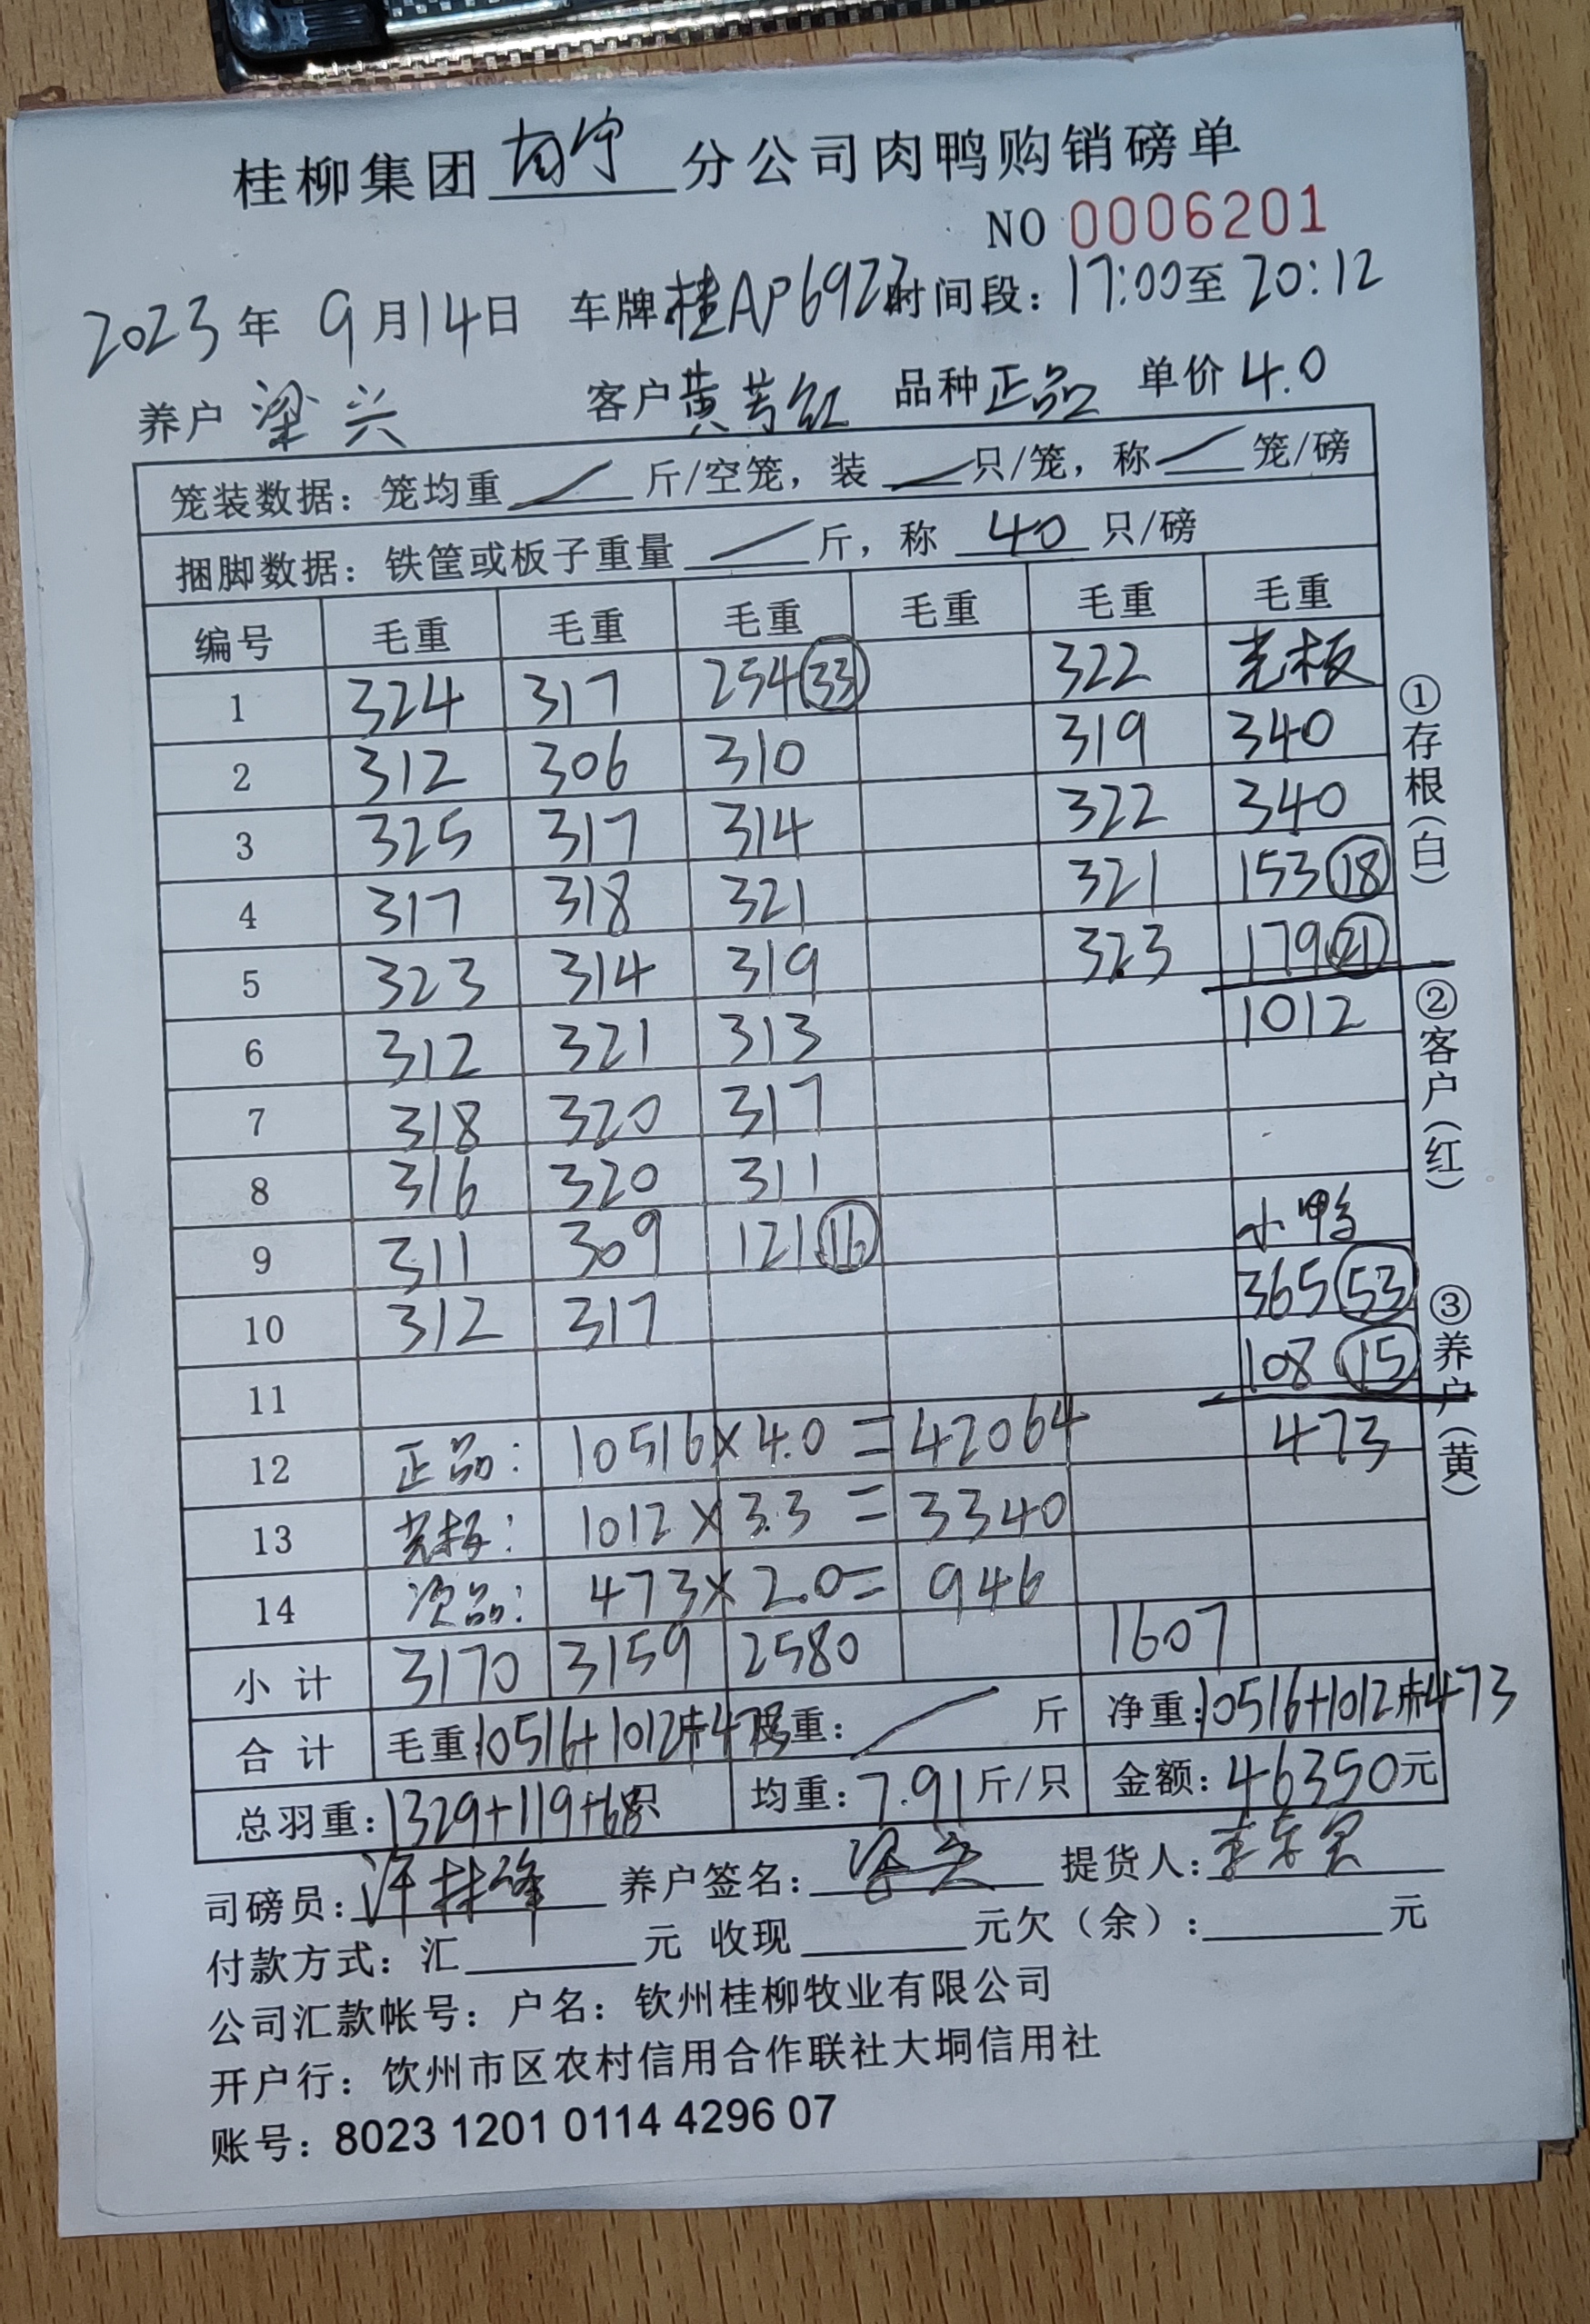 桂柳集团 南宁 分公司肉鸭购销磅单
NO 0006201
2023 年 9 月 14 日 车牌:桂AP6922 时间段: 17:00 至 20:12
养户 梁兴 客户 黄芳红 品种 正品 单价 4.0
笼装数据: 笼均重 / 斤/空笼, 装 / 只/笼, 称 / 笼/磅
捆脚数据: 铁筐或板子重量 / 斤, 称 40 只/磅
编号 毛重 毛重 毛重 毛重 毛重 毛重
1 324 317 254 33 322 光板
2 312 306 310 319 340
3 325 317 314 322 340
4 317 318 321 321 153 18
5 323 314 319 323 179 21
6 312 321 313 1012
7 318 320 317
8 316 320 311 小鸭
9 311 309 121 16 365 53
10 312 317 108 15
11
12 正品: 10516×4.0=42064 473
13 光板: 1012×3.3=3340
14 次品: 473×2.0=946
小计 3170 3159 2580 1607
合计 毛重:10516+1012+473 重: / 斤 净重:10516+1012+473
总羽重: 1329+119+68 只 均重: 7.91 斤/只 金额: 46350 元
司磅员: 许林峰 养户签名: 梁兴 提货人:
付款方式: 汇 元 收现 元欠(余): 元
公司汇款帐号: 户名: 钦州桂柳牧业有限公司
开户行: 钦州市区农村信用合作联社大垌信用社
账号: 8023 1201 0114 4296 07
①存根(白)
②客户(红)
③养户(黄)